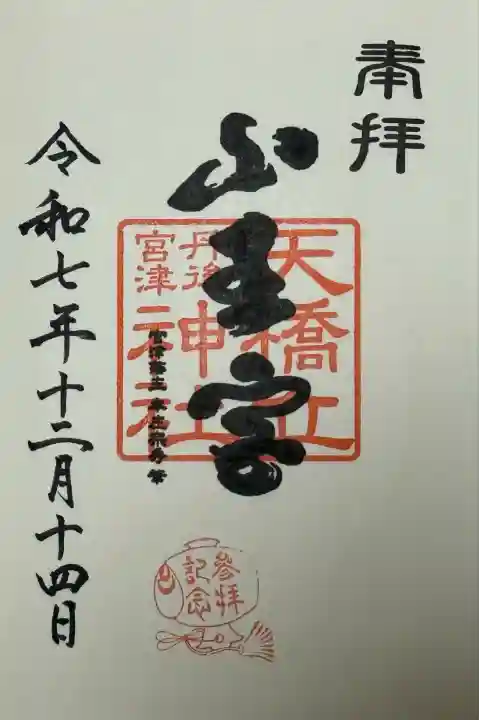 奉拝
山王宮
天橋立
丹後
宮津
神社
宮津藩主 本庄宗秀 筆
令和七年十二月十四日
参拝
記念